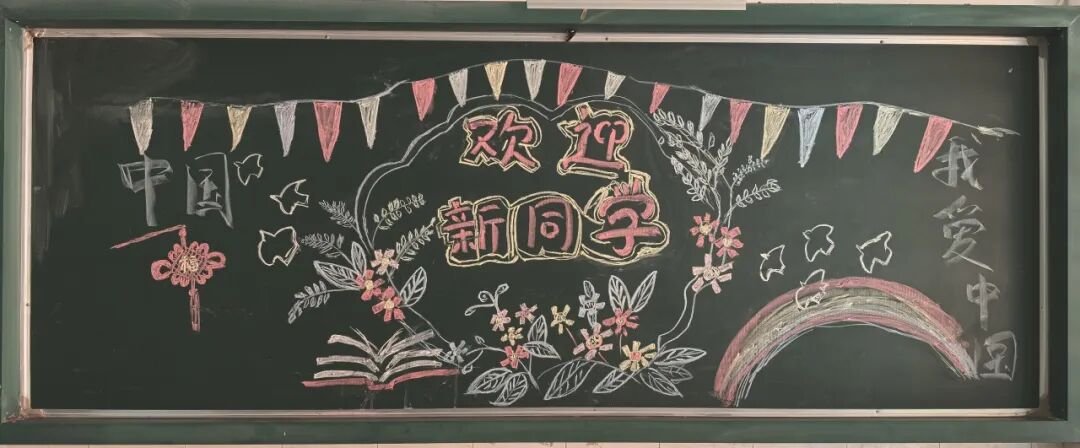 中国
欢迎
新同学
我爱中国